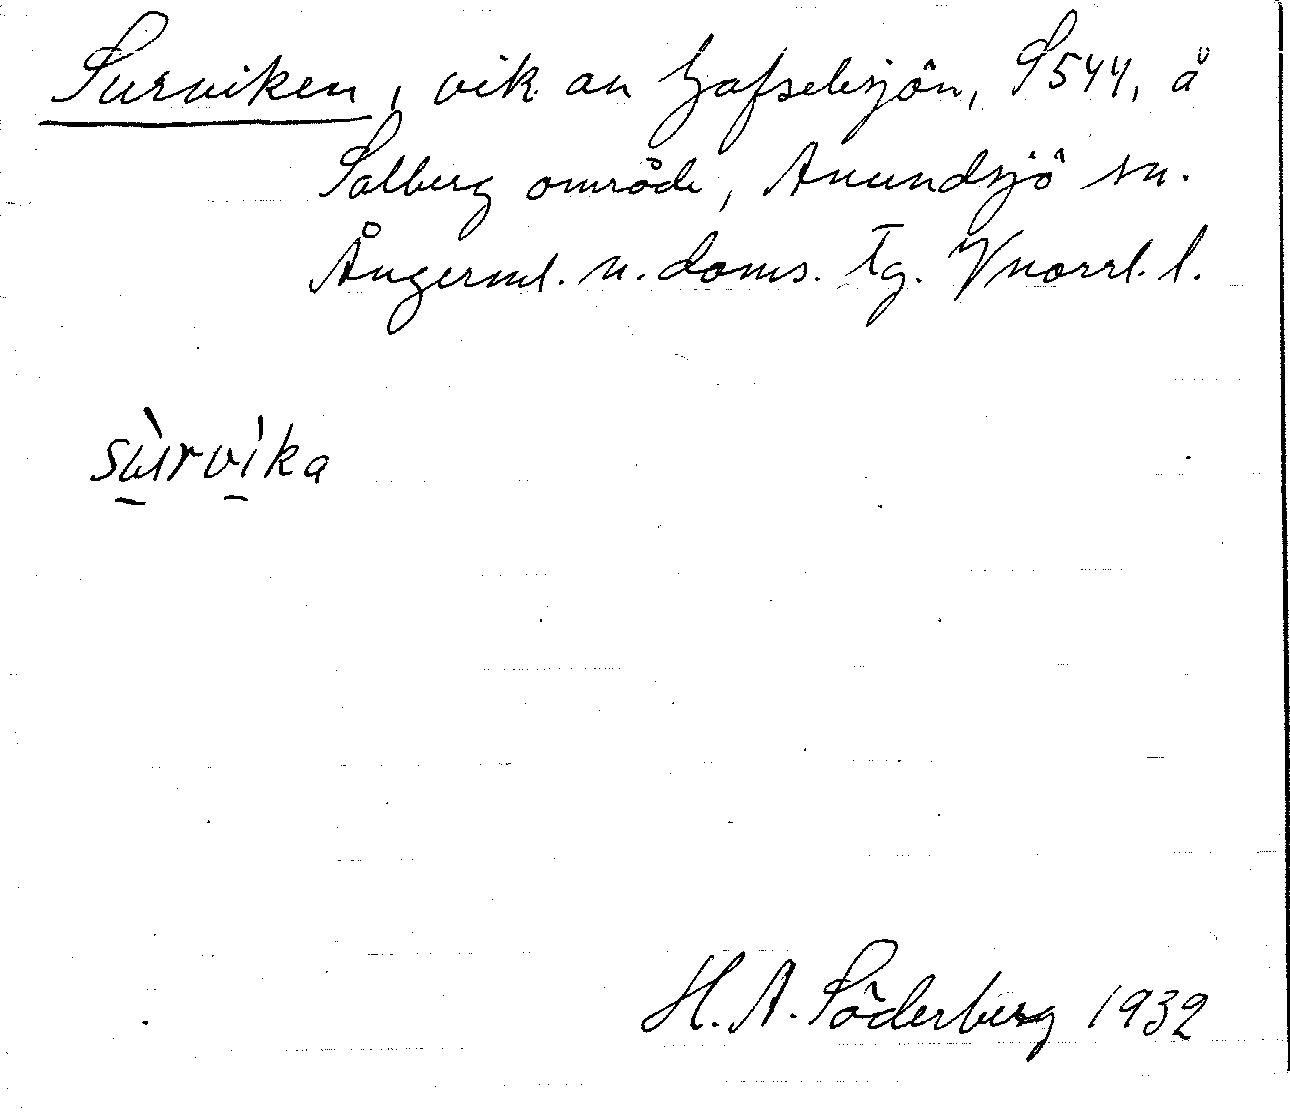 Surviken, vik an Gafselesjön, S544, å
Solberg område, Anundsjö sn.
Ångerml. n. doms. tg. Vnorrl. l.
sùrvika
H. A. Söderberg 1932